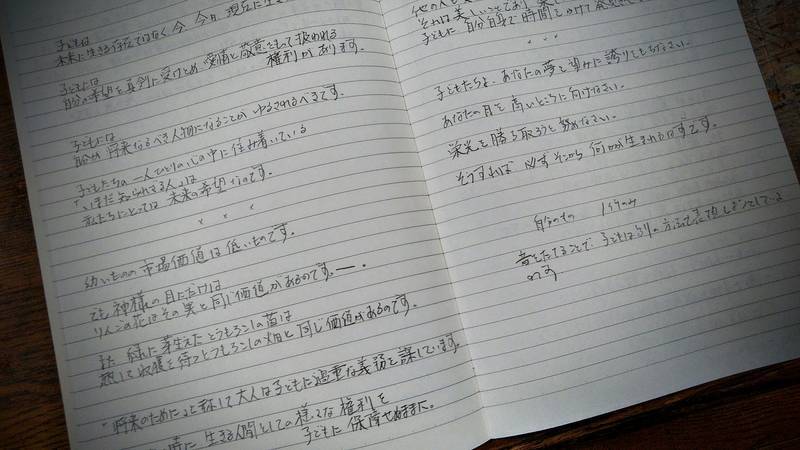 子どもは
未来に生きる存在ではなく 今、今日、現在に生き
子どもには
自分の希望を真剣に受けとめ 愛情と敬意をもって扱われる
権利があります。
子どもには
自分が将来なるべき人物になることが ゆるされるべきです。
子どもたちの一人ひとりの心の中に住み着いている
「いまだ知られざる人」は
私たちにとっては 未来の希望なのです。
× × ×
幼いものの市場価値は低いものです。
でも神様の目にだけは
りんごの花はその実と同じ価値があるのです。
また 緑に芽生えたとうもろこしの苗は
熟して収穫を待つとうもろこしの畑と同じ価値があるのです。
"将来のために"と称して大人は子どもに過重な義務を課しています。
に生きる人間としての様々な権利を
子どもに 保障せぬままに。
他の人も
それは美しいことであり
子どもに 自分自身で時間をかけて
・ ・ ・
子どもたちよ、あなたの夢と望みに誇りをもちなさい。
あなたの目を高いところに向けなさい。
栄光を勝ち取ろうと努めなさい。
そうすれば 必ずそこから何かが生まれるはずです。
自分のもの 1行のみ
音をたてることで、子どもは
のです